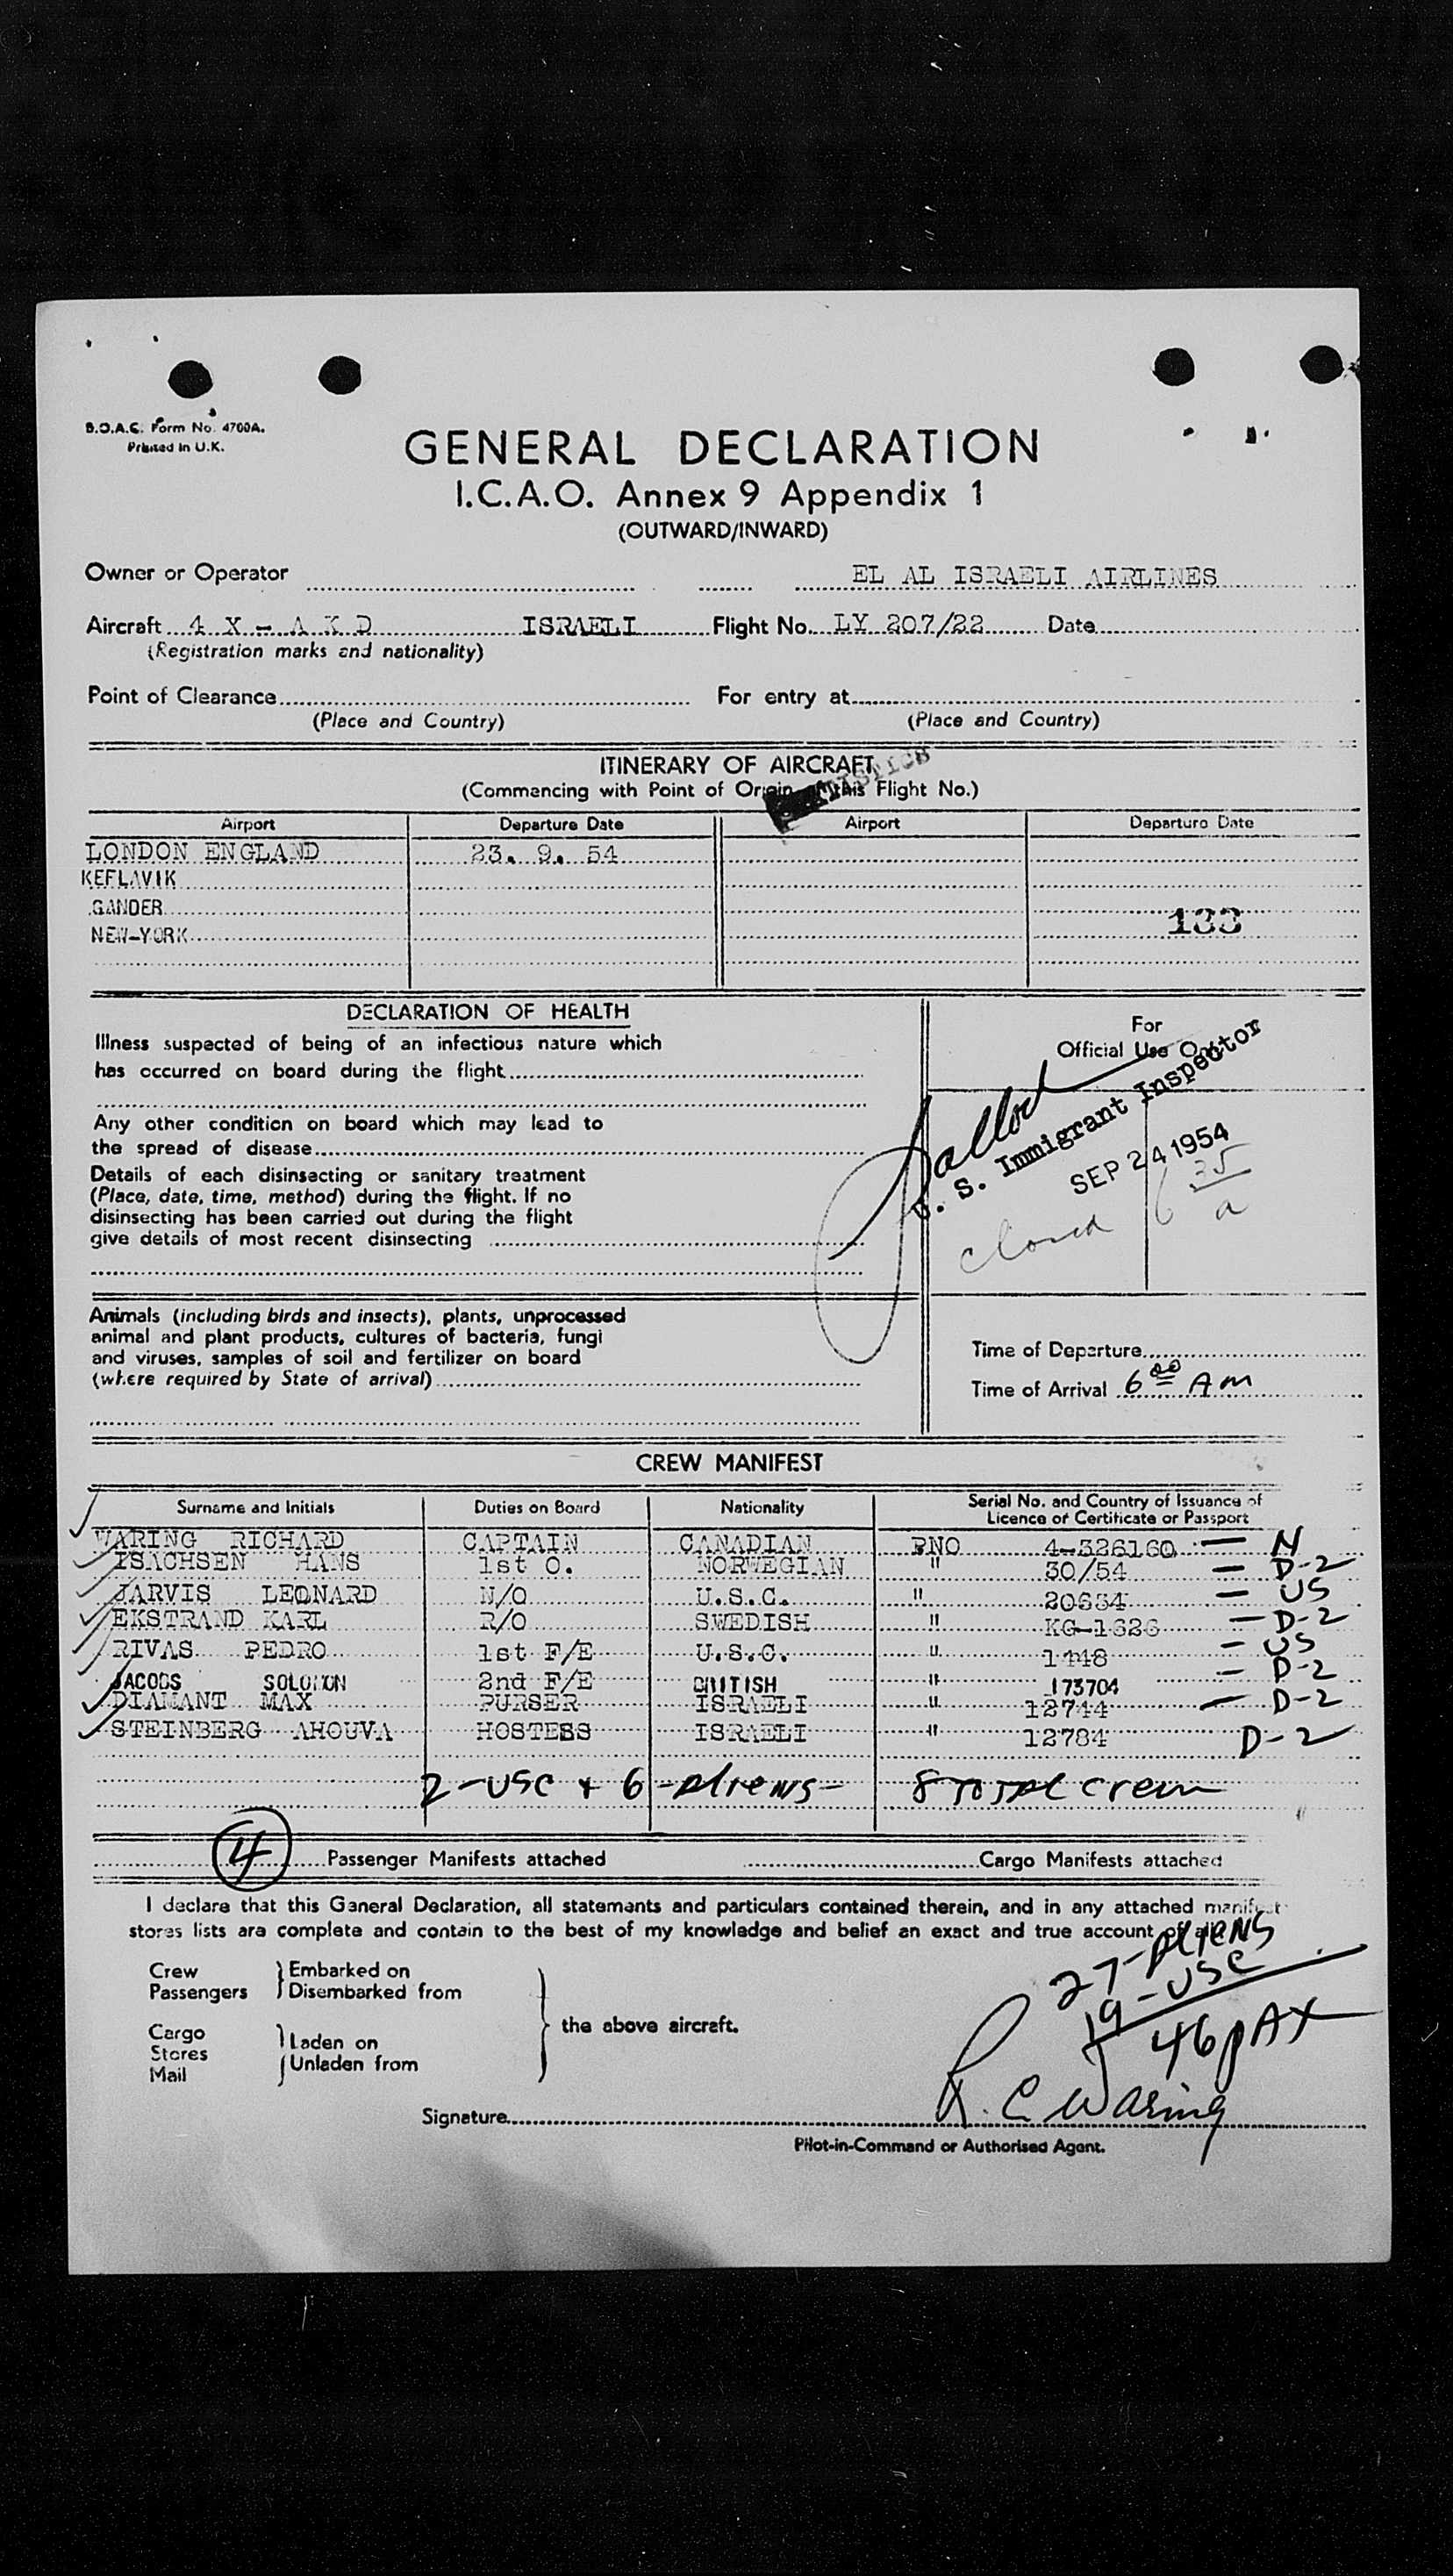 B.O.A.C. Form No. 4700A.
Printed in U.K.
GENERAL DECLARATION
I.C.A.O. Annex 9 Appendix 1
(OUTWARD/INWARD)
Owner or Operator EL AL ISRAELI AIRLINES
Aircraft 4 X - A K D ISRAELI Flight No. LY 207/22 Date
(Registration marks and nationality)
Point of Clearance For entry at
(Place and Country) (Place and Country)
ITINERARY OF AIRCRAFT
(Commencing with Point of Origin of this Flight No.)
Airport Departure Date Airport Departure Date
LONDON ENGLAND 23. 9. 54
KEFLAVIK
GANDER
133
NEW-YORK
DECLARATION OF HEALTH
Illness suspected of being of an infectious nature which
has occurred on board during the flight
Any other condition on board which may lead to
the spread of disease
Details of each disinsecting or sanitary treatment
(Place, date, time, method) during the flight. If no
disinsecting has been carried out during the flight
give details of most recent disinsecting
For
Official Use Only
U. S. Immigrant Inspector
SEP 24 1954
closed 6 35
a
Animals (including birds and insects), plants, unprocessed
animal and plant products, cultures of bacteria, fungi
and viruses, samples of soil and fertilizer on board
(where required by State of arrival)
Time of Departure
Time of Arrival 6 00 AM
CREW MANIFEST
Surname and Initials Duties on Board Nationality Serial No. and Country of Issuance of
Licence or Certificate or Passport
WARING RICHARD CAPTAIN CANADIAN PNO 4-326160 - N
ISACHSEN HANS 1st O. NORWEGIAN " 30/54 - D-2
JARVIS LEONARD N/O U.S.C. " 20634 - US
EKSTRAND KARL R/O SWEDISH " KG-1626 - D-2
RIVAS PEDRO 1st F/E U.S.C. " 1448 - US
JACOBS SOLOMON 2nd F/E BRITISH " 173704 - D-2
DIAMANT MAX PURSER ISRAELI " 12744 - D-2
STEINBERG AHOUVA HOSTESS ISRAELI " 12784 D-2
2-USC + 6-Aliens- 8 Total Crew
4 Passenger Manifests attached Cargo Manifests attached
I declare that this General Declaration, all statements and particulars contained therein, and in any attached manifest
stores lists are complete and contain to the best of my knowledge and belief an exact and true account of all
27-Aliens
19-USC
46 PAX
Crew } Embarked on
Passengers } Disembarked from
the above aircraft.
Cargo
Stores } Laden on
Mail } Unladen from
Signature R. C Waring
Pilot-in-Command or Authorised Agent.